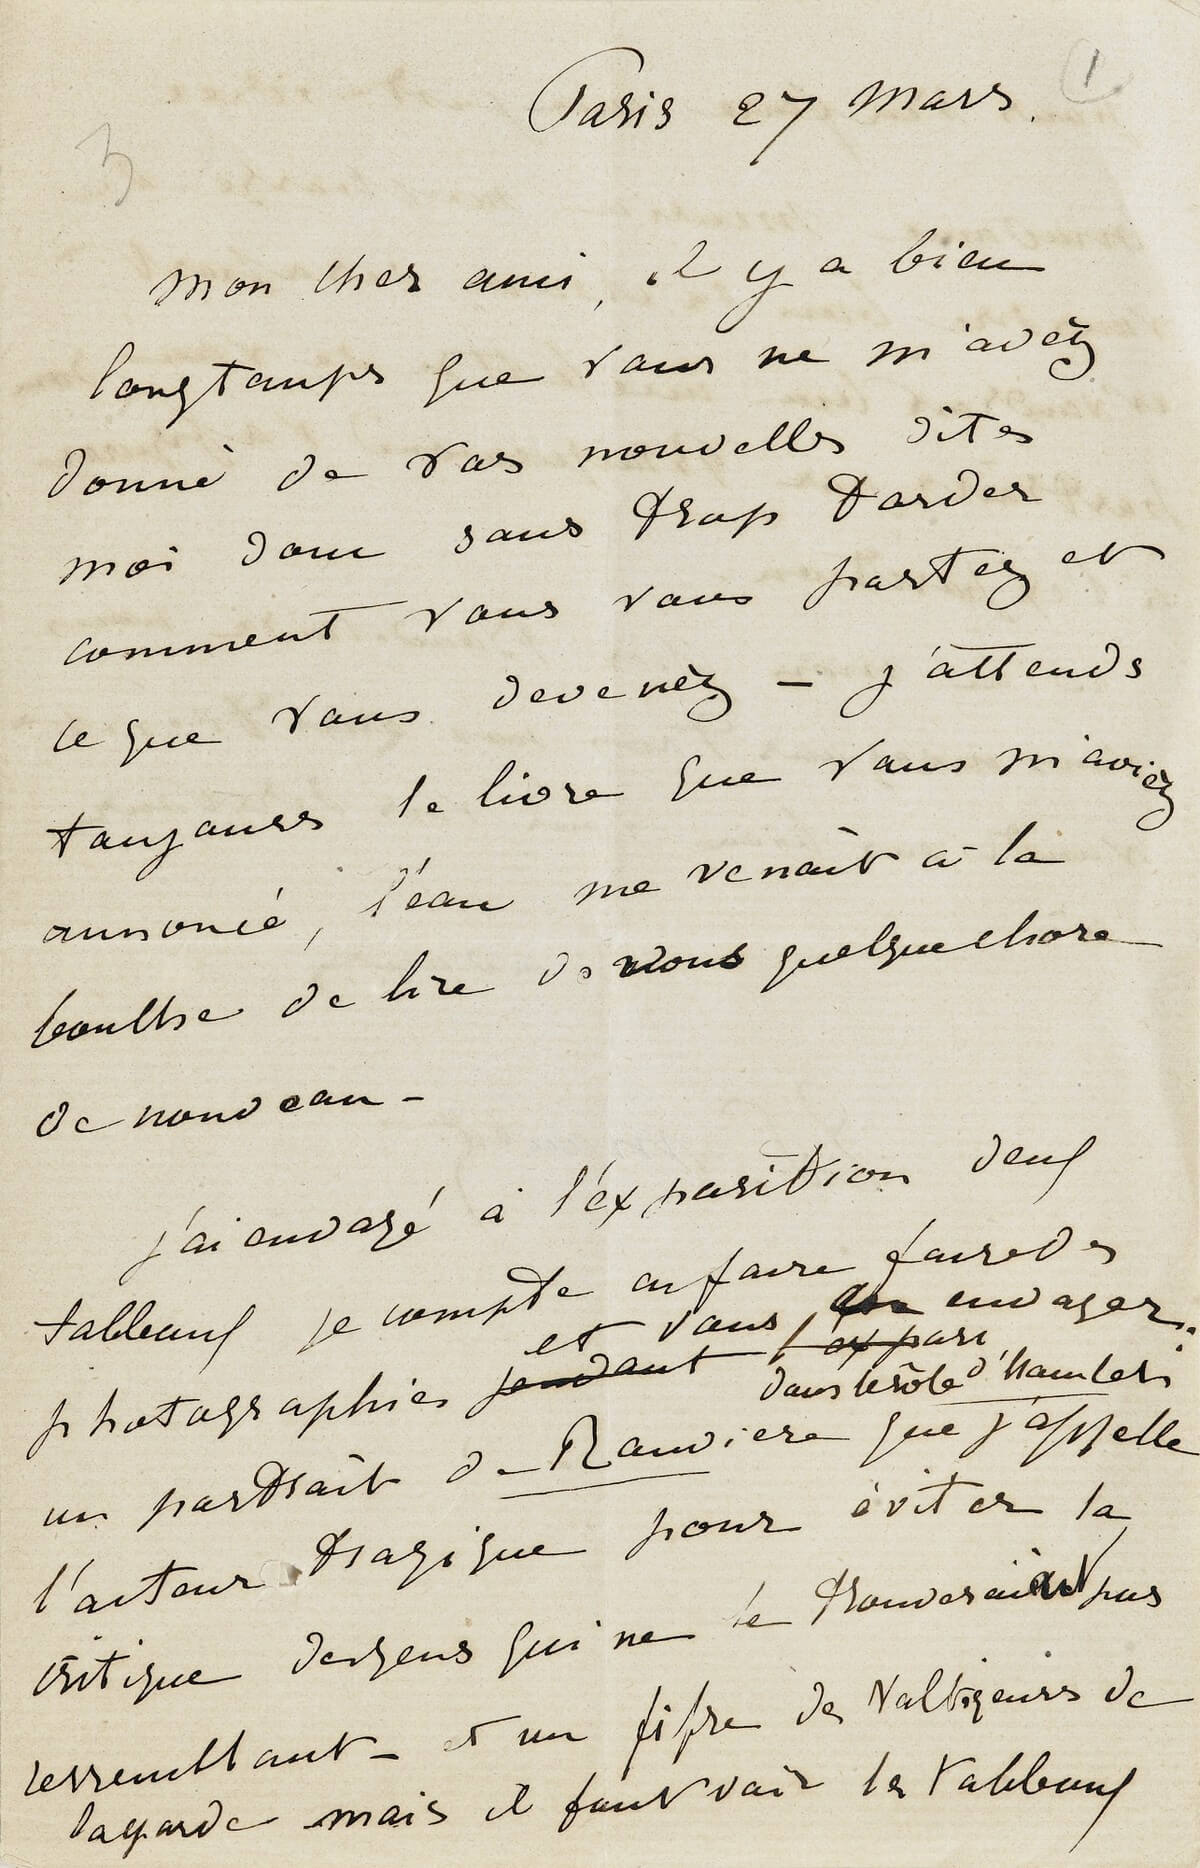 1
3
Paris 27 mars.
mon cher ami, il y a bien
longtemps que vous ne m'avéz
donné de vos nouvelles dites
moi donc sans trop tarder
comment vous vous portez et
ce que vous devenèz – j'attends
toujours le livre que vous m'avièz
annoncé, l'eau me venait à la
bouche de lire de vous quelque chose
de nouveau –
j'ai envoyé à l'éxposition deux
tableaux je compte en faire faire des
photographies pendant l'expos et vous en envoyer.
un portrait de Rouviere dans le rôle d'Hamlet que j'appelle
l'acteur tragique pour éviter la
critique des gens qui ne le trouveraient pas
ressemblant – et un fifre de Voltigeurs de
la garde mais il faut voir les tableaux